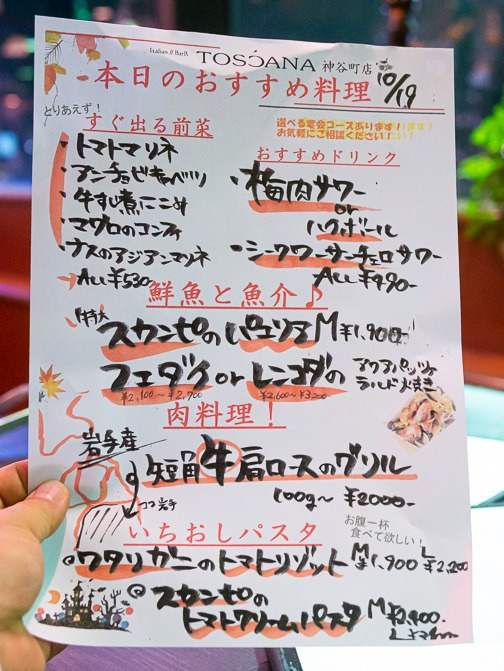 Italian // BarB.
TOSCANA 神谷町店
本日のおすすめ料理 10/19
とりあえず！
すぐ出る前菜
・トマトマリネ
・アンチョビキャベツ
・牛すじ煮こごり
・マグロのコンフィ
・ナスのアジアンマリネ
ALL ¥530-
選べる宴会コースあります！
お気軽にご相談ください！
おすすめドリンク
・梅肉サワー
or
ハイボール
・シークワーサーチェロサワー
ALL ¥990-
鮮魚と魚介♪
特大
スカンピのパエリア M ¥1,900-
フエダイ or レンコダイの アクアパッツァ
ラルド焼き
¥2,100〜¥2,700 ¥2,600〜¥3,200
肉料理！
岩手産
短角牛肩ロースのグリル
100g〜 ¥2000-
ココ岩手
いちおしパスタ
お腹一杯
食べて欲しい！
ワタリガニのトマトリゾット M ¥1,900 L ¥2,200
スカンピの
トマトクリームパスタ M ¥2,400-